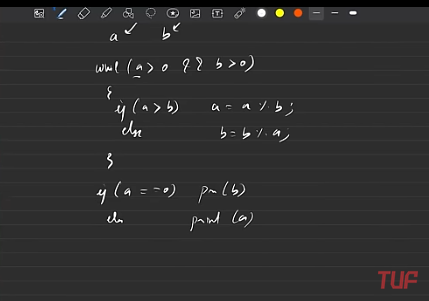 a b
while (a > 0 && b > 0)
{
if (a > b) a = a % b;
else b = b % a;
}
if (a == 0) print(b)
else print (a)
TUF